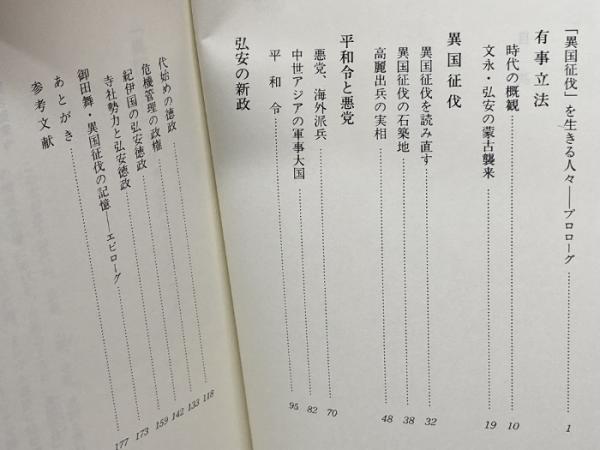 「異国征伐」を生きる人々――プロローグ……1
有事立法
時代の概観……10
文永・弘安の蒙古襲来……19
異国征伐
異国征伐を読み直す……32
異国征伐の石築地……38
高麗出兵の実相……48
平和令と悪党
悪党、海外派兵……70
中世アジアの軍事大国……82
平和令……95
弘安の新政
代始めの徳政……118
危機管理の政権……133
紀伊国の弘安徳政……142
寺社勢力と弘安徳政……159
御田舞・異国征伐の記憶――エピローグ……173
あとがき……177
参考文献